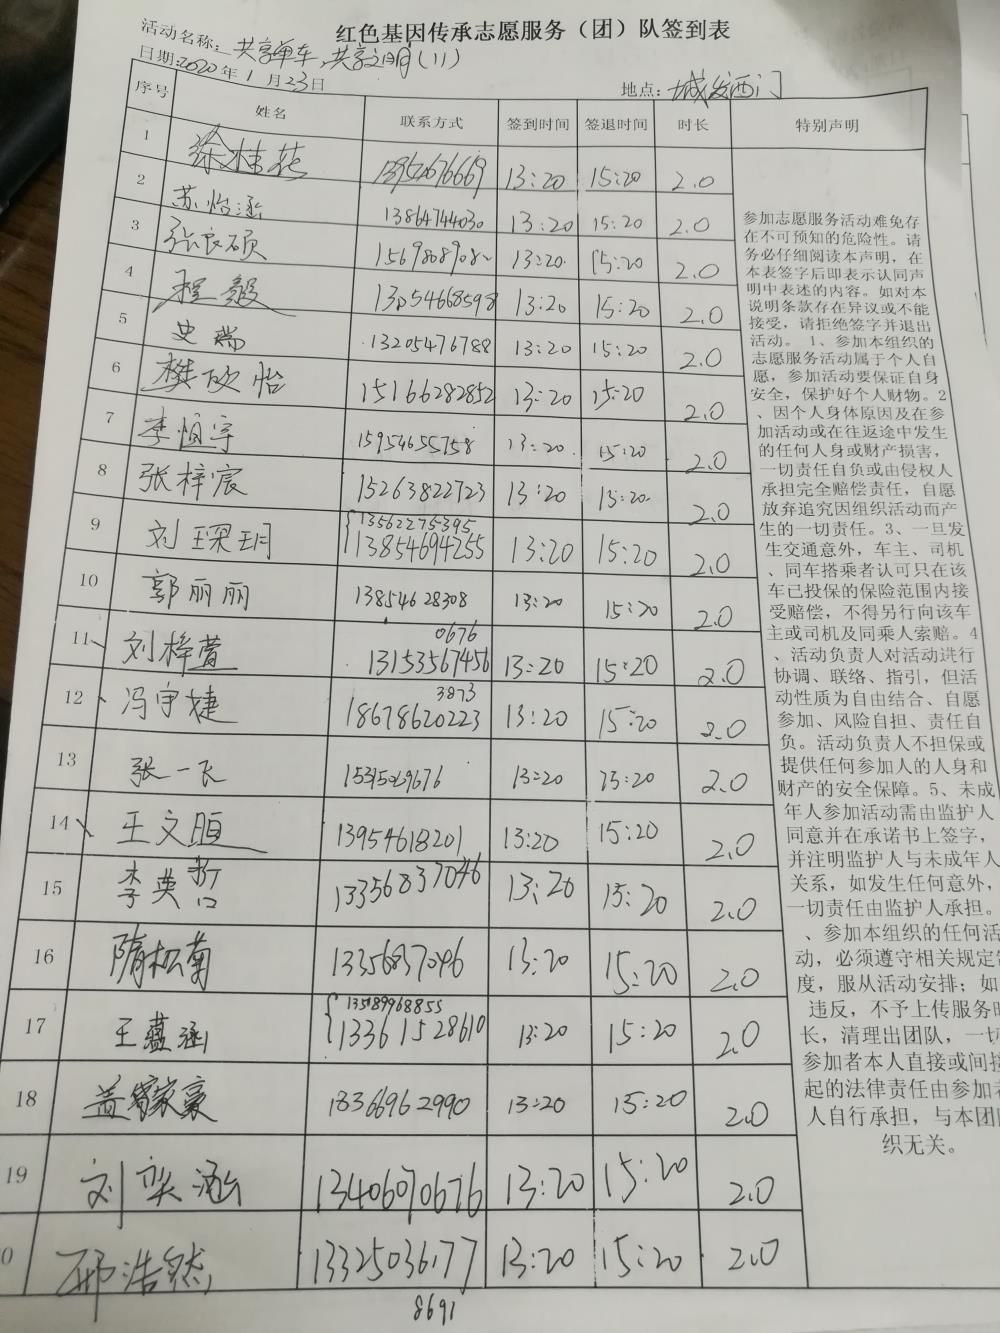 红色基因传承志愿服务（团）队签到表
活动名称：共享单车，共享文明（11）
日期：2020年1月23日
地点：城发西门
序号 姓名 联系方式 签到时间 签退时间 时长 特别声明
1 徐桂花 13:20 15:20 2.0
2 苏怡涵 13864744030 13:20 15:20 2.0
3 张良硕 13:20 15:20 2.0
4 程毅 13:20 15:20 2.0
5 史瑞 13205476788 13:20 15:20 2.0
6 樊欣怡 15166282852 13:20 15:20 2.0
7 李恒宇 15954655758 13:20 15:20 2.0
8 张梓宸 15263822723 13:20 15:20 2.0
9 刘琛玥 13562275395
13854694255 13:20 15:20 2.0
10 郭丽丽 13854628308 13:20 15:20 2.0
11 刘梓萱 0676
13153567456 13:20 15:20 2.0
12 冯宇婕 3873
18678620223 13:20 15:20 2.0
13 张一飞 13:20 15:20 2.0
14 王文恒 13954618201 13:20 15:20 2.0
15 李英哲 13356837046 13:20 15:20 2.0
16 隋松菊 13356837046 13:20 15:20 2.0
17 王蕴涵 13589968855
13361528610 13:20 15:20 2.0
18 盖家豪 18366962990 13:20 15:20 2.0
19 刘奕涵 13406070676 13:20 15:20 2.0
0 邢浩然 13325036177 13:20 15:20 2.0
8691
参加志愿服务活动难免存
在不可预知的危险性。请
务必仔细阅读本声明，在
本表签字后即表示认同声
明中表述的内容。如对本
说明条款存在异议或不能
接受，请拒绝签字并退出
活动。 1、参加本组织的
志愿服务活动属于个人自
愿，参加活动要保证自身
安全，保护好个人财物。2
、因个人身体原因及在参
加活动或在往返途中发生
的任何人身或财产损害，
一切责任自负或由侵权人
承担完全赔偿责任，自愿
放弃追究因组织活动而产
生的一切责任。3、一旦发
生交通意外，车主、司机
、同车搭乘者认可只在该
车已投保的保险范围内接
受赔偿，不得另行向该车
主或司机及同乘人索赔。4
、活动负责人对活动进行
协调、联络、指引，但活
动性质为自由结合、自愿
参加、风险自担、责任自
负。活动负责人不担保或
提供任何参加人的人身和
财产的安全保障。5、未成
年人参加活动需由监护人
同意并在承诺书上签字，
并注明监护人与未成年人
关系，如发生任何意外，
一切责任由监护人承担。
、参加本组织的任何活
动，必须遵守相关规定
度，服从活动安排；如
违反，不予上传服务时
长，清理出团队，一切
参加者本人直接或间接
起的法律责任由参加者
人自行承担，与本团队
织无关。